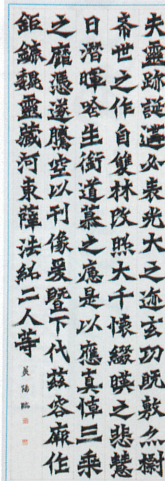 夫靈跡誕遘必表光大之迹玄功既敷亦標
希世之作自雙林改照大千懷綴暎之悲慧
日潛暉唅生銜道慕之痛是以應真悼三乘
之靡憑遂騰空以刊像爰暨下代茲容厥作
鉅鏕魏靈藏河東薛法紹二人等
陽臨